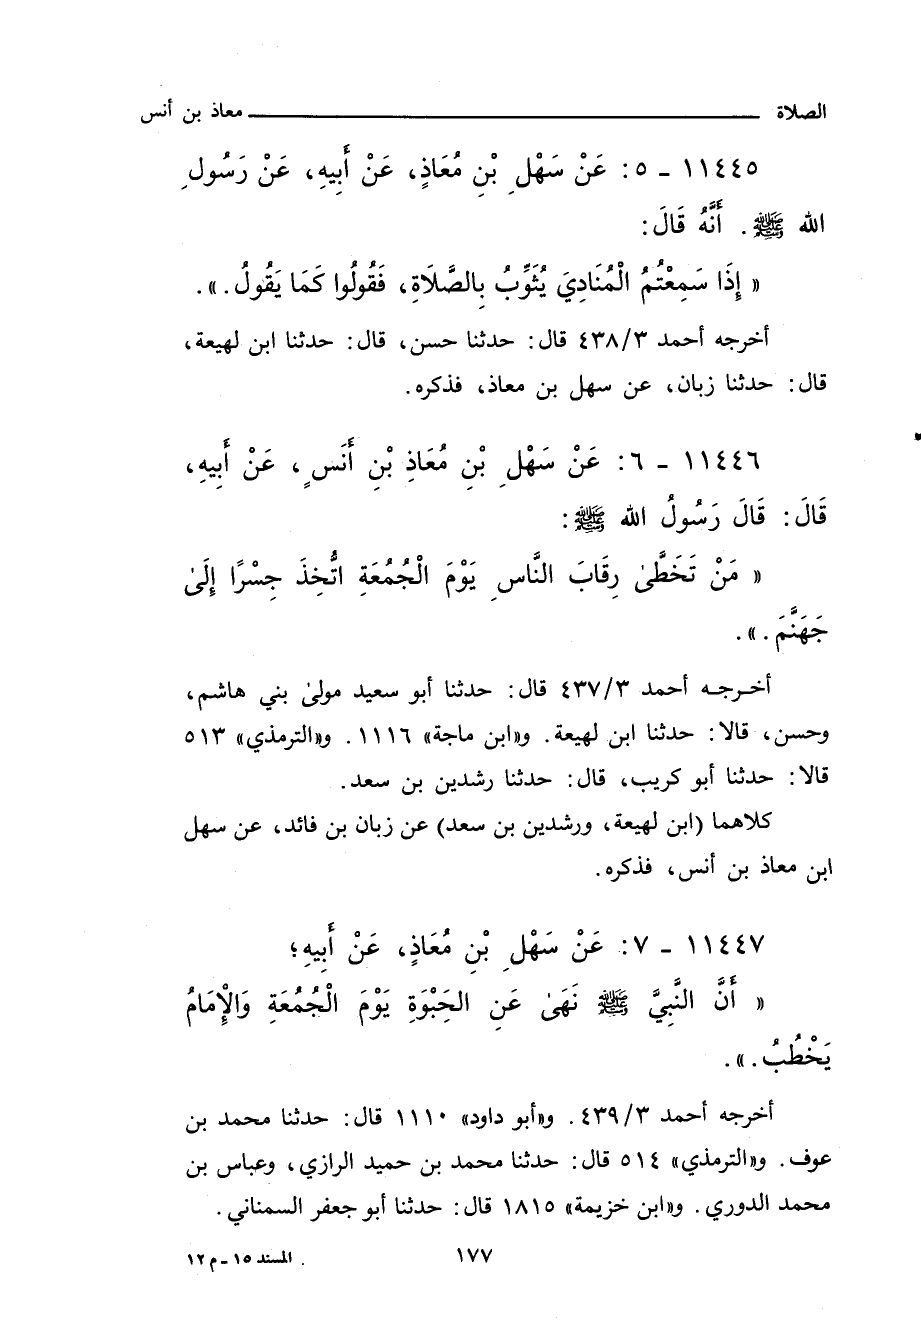 الصلاة ــــــــــ معاذ بن أنس
١١٤٤٥ ـ ٥: عَنْ سَهْلِ بْنِ مُعَاذٍ، عَنْ أَبِيهِ، عَنْ رَسُولِ
الله ﷺ. أَنَّهُ قَالَ:
« إِذَا سَمِعْتُمُ الْمُنَادِيَ يُثَوِّبُ بِالصَّلَاةِ، فَقُولُوا كَمَا يَقُولُ. ».
أخرجه أحمد ٤٣٨/٣ قال: حدثنا حسن، قال: حدثنا ابن لهيعة،
قال: حدثنا زبان، عن سهل بن معاذ، فذكره.
١١٤٤٦ ـ ٦: عَنْ سَهْلِ بْنِ مُعَاذِ بْنِ أَنَسٍ، عَنْ أَبِيهِ،
قَالَ: قَالَ رَسُولُ الله ﷺ:
« مَنْ تَخَطَّىٰ رِقَابَ النَّاسِ يَوْمَ الْجُمُعَةِ اتُّخِذَ جِسْرًا إِلَىٰ
جَهَنَّمَ. ».
أخرجه أحمد ٤٣٧/٣ قال: حدثنا أبو سعيد مولىٰ بني هاشم،
وحسن، قالا: حدثنا ابن لهيعة. و«ابن ماجة» ١١١٦. و«الترمذي» ٥١٣
قالا: حدثنا أبو كريب، قال: حدثنا رشدين بن سعد.
كلاهما (ابن لهيعة، ورشدين بن سعد) عن زبان بن فائد، عن سهل
ابن معاذ بن أنس، فذكره.
١١٤٤٧ ـ ٧: عَنْ سَهْلِ بْنِ مُعَاذٍ، عَنْ أَبِيهِ؛
« أَنَّ النَّبِيَّ ﷺ نَهَىٰ عَنِ الحَِبْوَةِ يَوْمَ الْجُمُعَةِ وَالْإِمَامُ
يَخْطُبُ. ».
أخرجه أحمد ٤٣٩/٣. و«أبو داود» ١١١٠ قال: حدثنا محمد بن
عوف. و«الترمذي» ٥١٤ قال: حدثنا محمد بن حميد الرازي، وعباس بن
محمد الدوري. و«ابن خزيمة» ١٨١٥ قال: حدثنا أبو جعفر السمناني.
١٧٧
المسند ١٥ ـ م ١٢